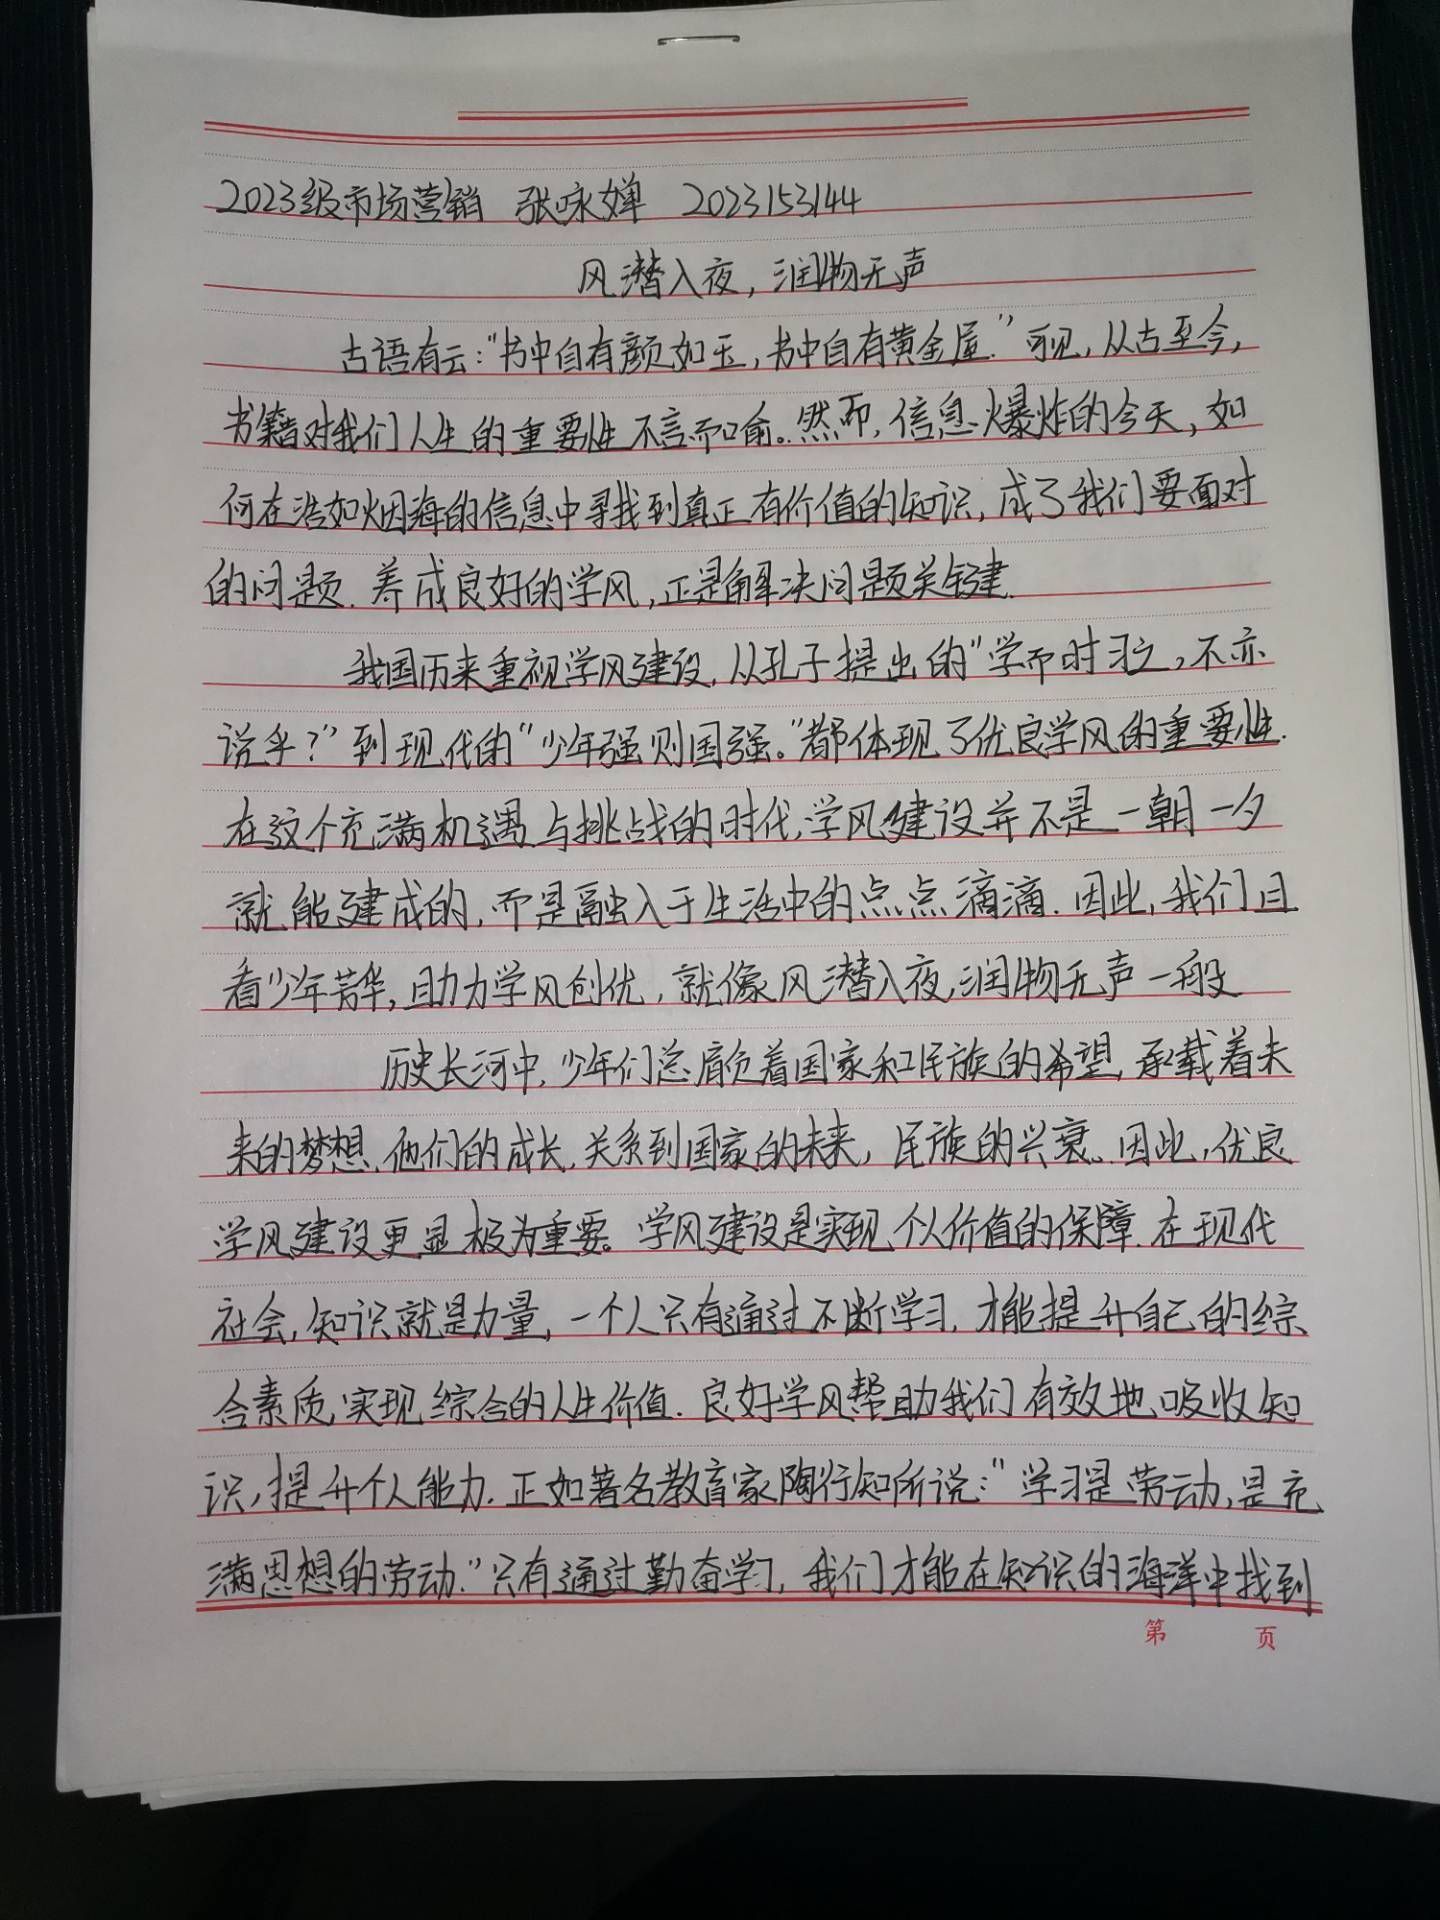 2023级市场营销 张咏婵 2023153144
风潜入夜，润物无声
古语有云："书中自有颜如玉，书中自有黄金屋."可见，从古至今，
书籍对我们人生的重要性不言而喻。然而，信息爆炸的今天，如
何在浩如烟海的信息中寻找到真正有价值的知识，成了我们要面对
的问题.养成良好的学风，正是解决问题关键.
我国历来重视学风建设，从孔子提出的"学而时习之，不亦
说乎？"到现代的"少年强则国强。"都体现了优良学风的重要性.
在这个充满机遇与挑战的时代，学风建设并不是一朝一夕
就能建成的，而是融入于生活中的点点滴滴.因此，我们且
看少年菁华，助力学风创优，就像风潜入夜，润物无声一般
历史长河中，少年们总肩负着国家和民族的希望，承载着未
来的梦想.他们的成长，关系到国家的未来，民族的兴衰.因此，优良
学风建设更显极为重要。学风建设是实现个人价值的保障.在现代
社会，知识就是力量，一个人只有通过不断学习，才能提升自己的综
合素质，实现综合的人生价值.良好学风帮助我们有效地吸收知
识，提升个人能力.正如著名教育家陶行知所说："学习是劳动，是充
满思想的劳动."只有通过勤奋学习，我们才能在知识的海洋中找到
第 页